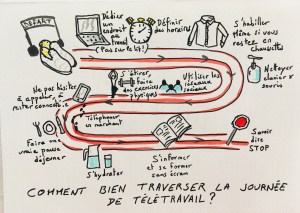 DÉPART
Dédier
un
endroit
au
travail
(Pas sur le lit!)
Définir
des horaires
S'habiller
Même si vous
restez en
chaussettes
Nettoyer
clavier &
souris
Utiliser les
réseaux
sociaux
S'étirer,
faire
des exercices
physiques
Ne pas hésiter
à appeler, à
rester connecté
Téléphoner
en marchant
Faire une
vraie pause
déjeuner
S'hydrater
S'informer
et se former
sans écran
Savoir
dire
STOP
COMMENT BIEN TRAVERSER LA JOURNÉE
DE TÉLÉTRAVAIL?